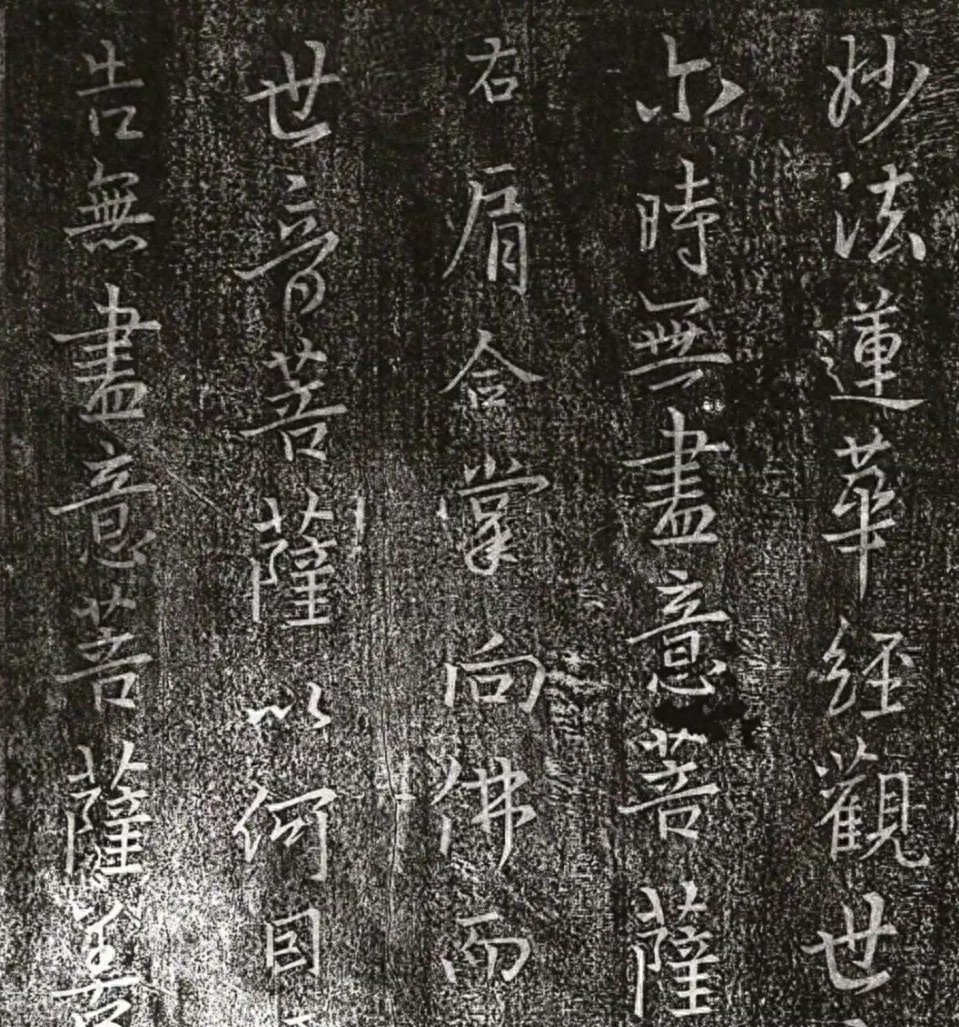 妙法蓮華經觀世
尒時無盡意菩薩
右肩合掌向佛而
世音菩薩以何因
告無盡意菩薩善